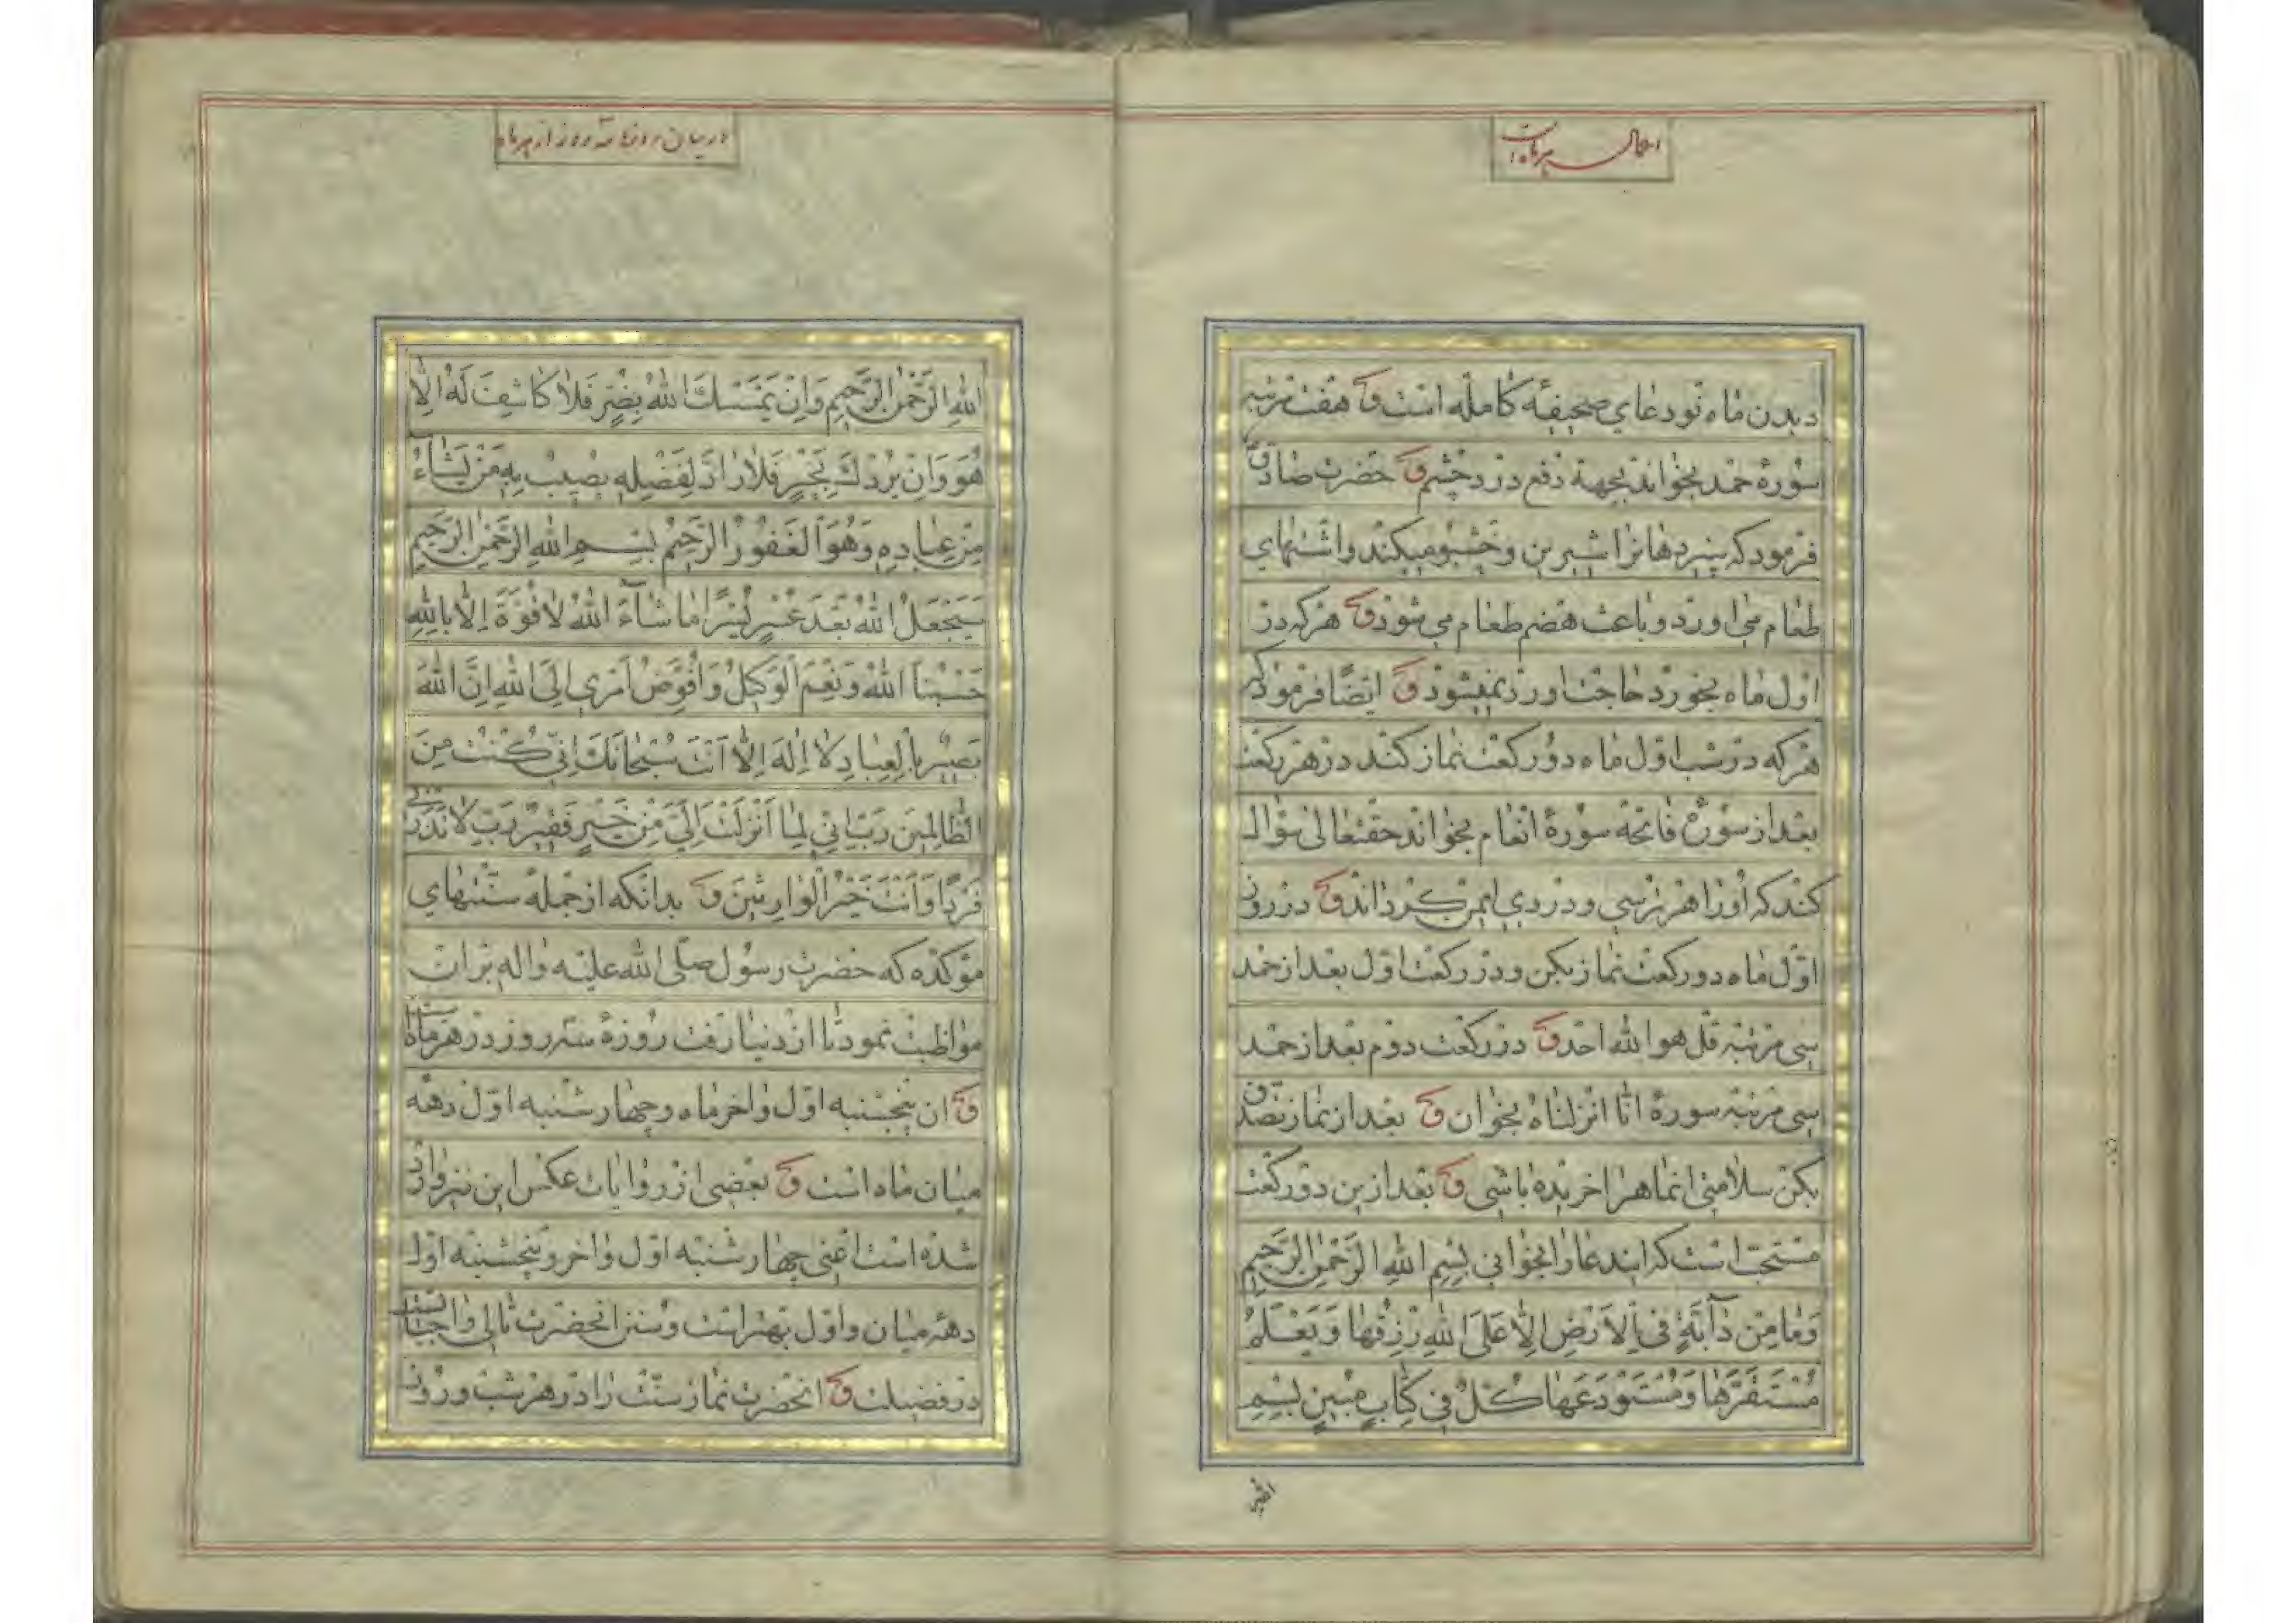 اعمال هر ماه است
دیدن ماه نو دعای صحیفهٔ کامله است وَ هفت مرتبه
سورهٔ حمد بخواند بجهة دفع درد چشم وَ حضرت صادق
فرمود که پنیر دهانرا شیرین و خشبو میکند واشتهای
طعام می اورد و باعث هضم طعام می شود وَ هرکه در
اول ماه بخورد حاجت او رد نمیشود وَ ایضًا فرمود که
هرکه در شب اوّل ماه دو رکعت نماز کند در هر رکعت
بعد از سورهٔ فاتحه سورهٔ انعام بخواند حقتعالی سؤال
کند که او را از هر ترسی و دردی ایمن کرداند وَ در روز
اوّل ماه دو رکعت نماز بکن و در رکعت اوّل بعد از حمد
سی مرتبه قل هو الله احد وَ در رکعت دوم بعد از حمد
سی مرتبه سورهٔ انّا انزلناه بخوان وَ بعد از نماز تصدّق
بکن سلامتی انماه را خریده باشی وَ بعد ازین دو رکعت
مستحبّ است که ایندعا را بخوانی بِسْمِ اللهِ الرَّحْمٰنِ الرَّحِیمِ
وَمَا مِنْ دَآبَّةٍ فِی الْاَرْضِ اِلَّا عَلَی اللهِ رِزْقُهَا وَیَعْلَمُ
مُسْتَقَرَّهَا وَمُسْتَوْدَعَهَا کُلٌّ فِی کِتَابٍ مُبِینٍ بِسْمِ
الله
در بیان روزهٔ سه روز از هر ماه
اللهِ الرَّحْمٰنِ الرَّحِیمِ وَاِنْ یَمْسَسْكَ اللهُ بِضُرٍّ فَلَا کَاشِفَ لَهُ اِلَّا
هُوَ وَاِنْ یُرِدْكَ بِخَیْرٍ فَلَا رَادَّ لِفَضْلِهِ یُصِیبُ بِهِ مَنْ یَشَآءُ
مِنْ عِبَادِهِ وَهُوَ الْغَفُورُ الرَّحِیمُ بِسْمِ اللهِ الرَّحْمٰنِ الرَّحِیمِ
سَیَجْعَلُ اللهُ بَعْدَ عُسْرٍ یُسْرًا مَا شَآءَ اللهُ لَا قُوَّةَ اِلَّا بِاللهِ
حَسْبُنَا اللهُ وَنِعْمَ الْوَکِیلُ وَاُفَوِّضُ اَمْرِی اِلَی اللهِ اِنَّ اللهَ
بَصِیرٌ بِالْعِبَادِ لَا اِلٰهَ اِلَّا اَنْتَ سُبْحَانَكَ اِنِّی کُنْتُ مِنَ
الظَّالِمِینَ رَبِّ اِنِّی لِمَا اَنْزَلْتَ اِلَیَّ مِنْ خَیْرٍ فَقِیرٌ رَبِّ لَا تَذَرْنِی
فَرْدًا وَاَنْتَ خَیْرُ الْوَارِثِینَ وَ بدانکه از جمله سنّتهای
مؤکده که حضرت رسول صلّی الله علیه واله بر ان
مواظبت نمود تا از دنیا رفت روزهٔ سه روز در هر ماه است
وَ ان پنجشنبه اوّل واخر ماه وچهار شنبه اوّل دهه
میان ماه است وَ بعضی از روایات عکس این نیز وارد
شده است اعنی چهار شنبه اوّل واخر وپنجشنبه اوّل
دهه میان واوّل بهتر است وسنن انحضرت تالی واجبات است
در فضیلت وَ انحضرت نماز سنّت را در هر شب و روز